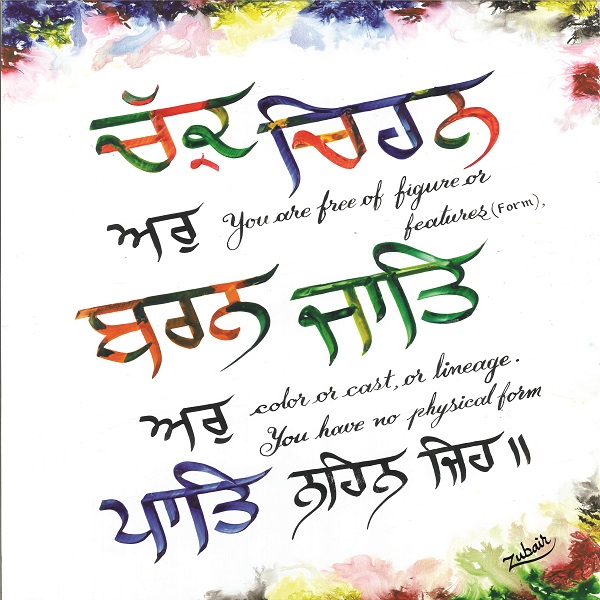 ਚੱਕ੍ਰ ਚਿਹਨ
ਅਰੁ You are free of figure or
features (Form),
ਬਰਨ ਜਾਤਿ
ਅਰੁ color or cast, or lineage.
You have no physical form
ਪਾਤਿ ਨਹਿਨ ਜਿਹ ॥
Zubair